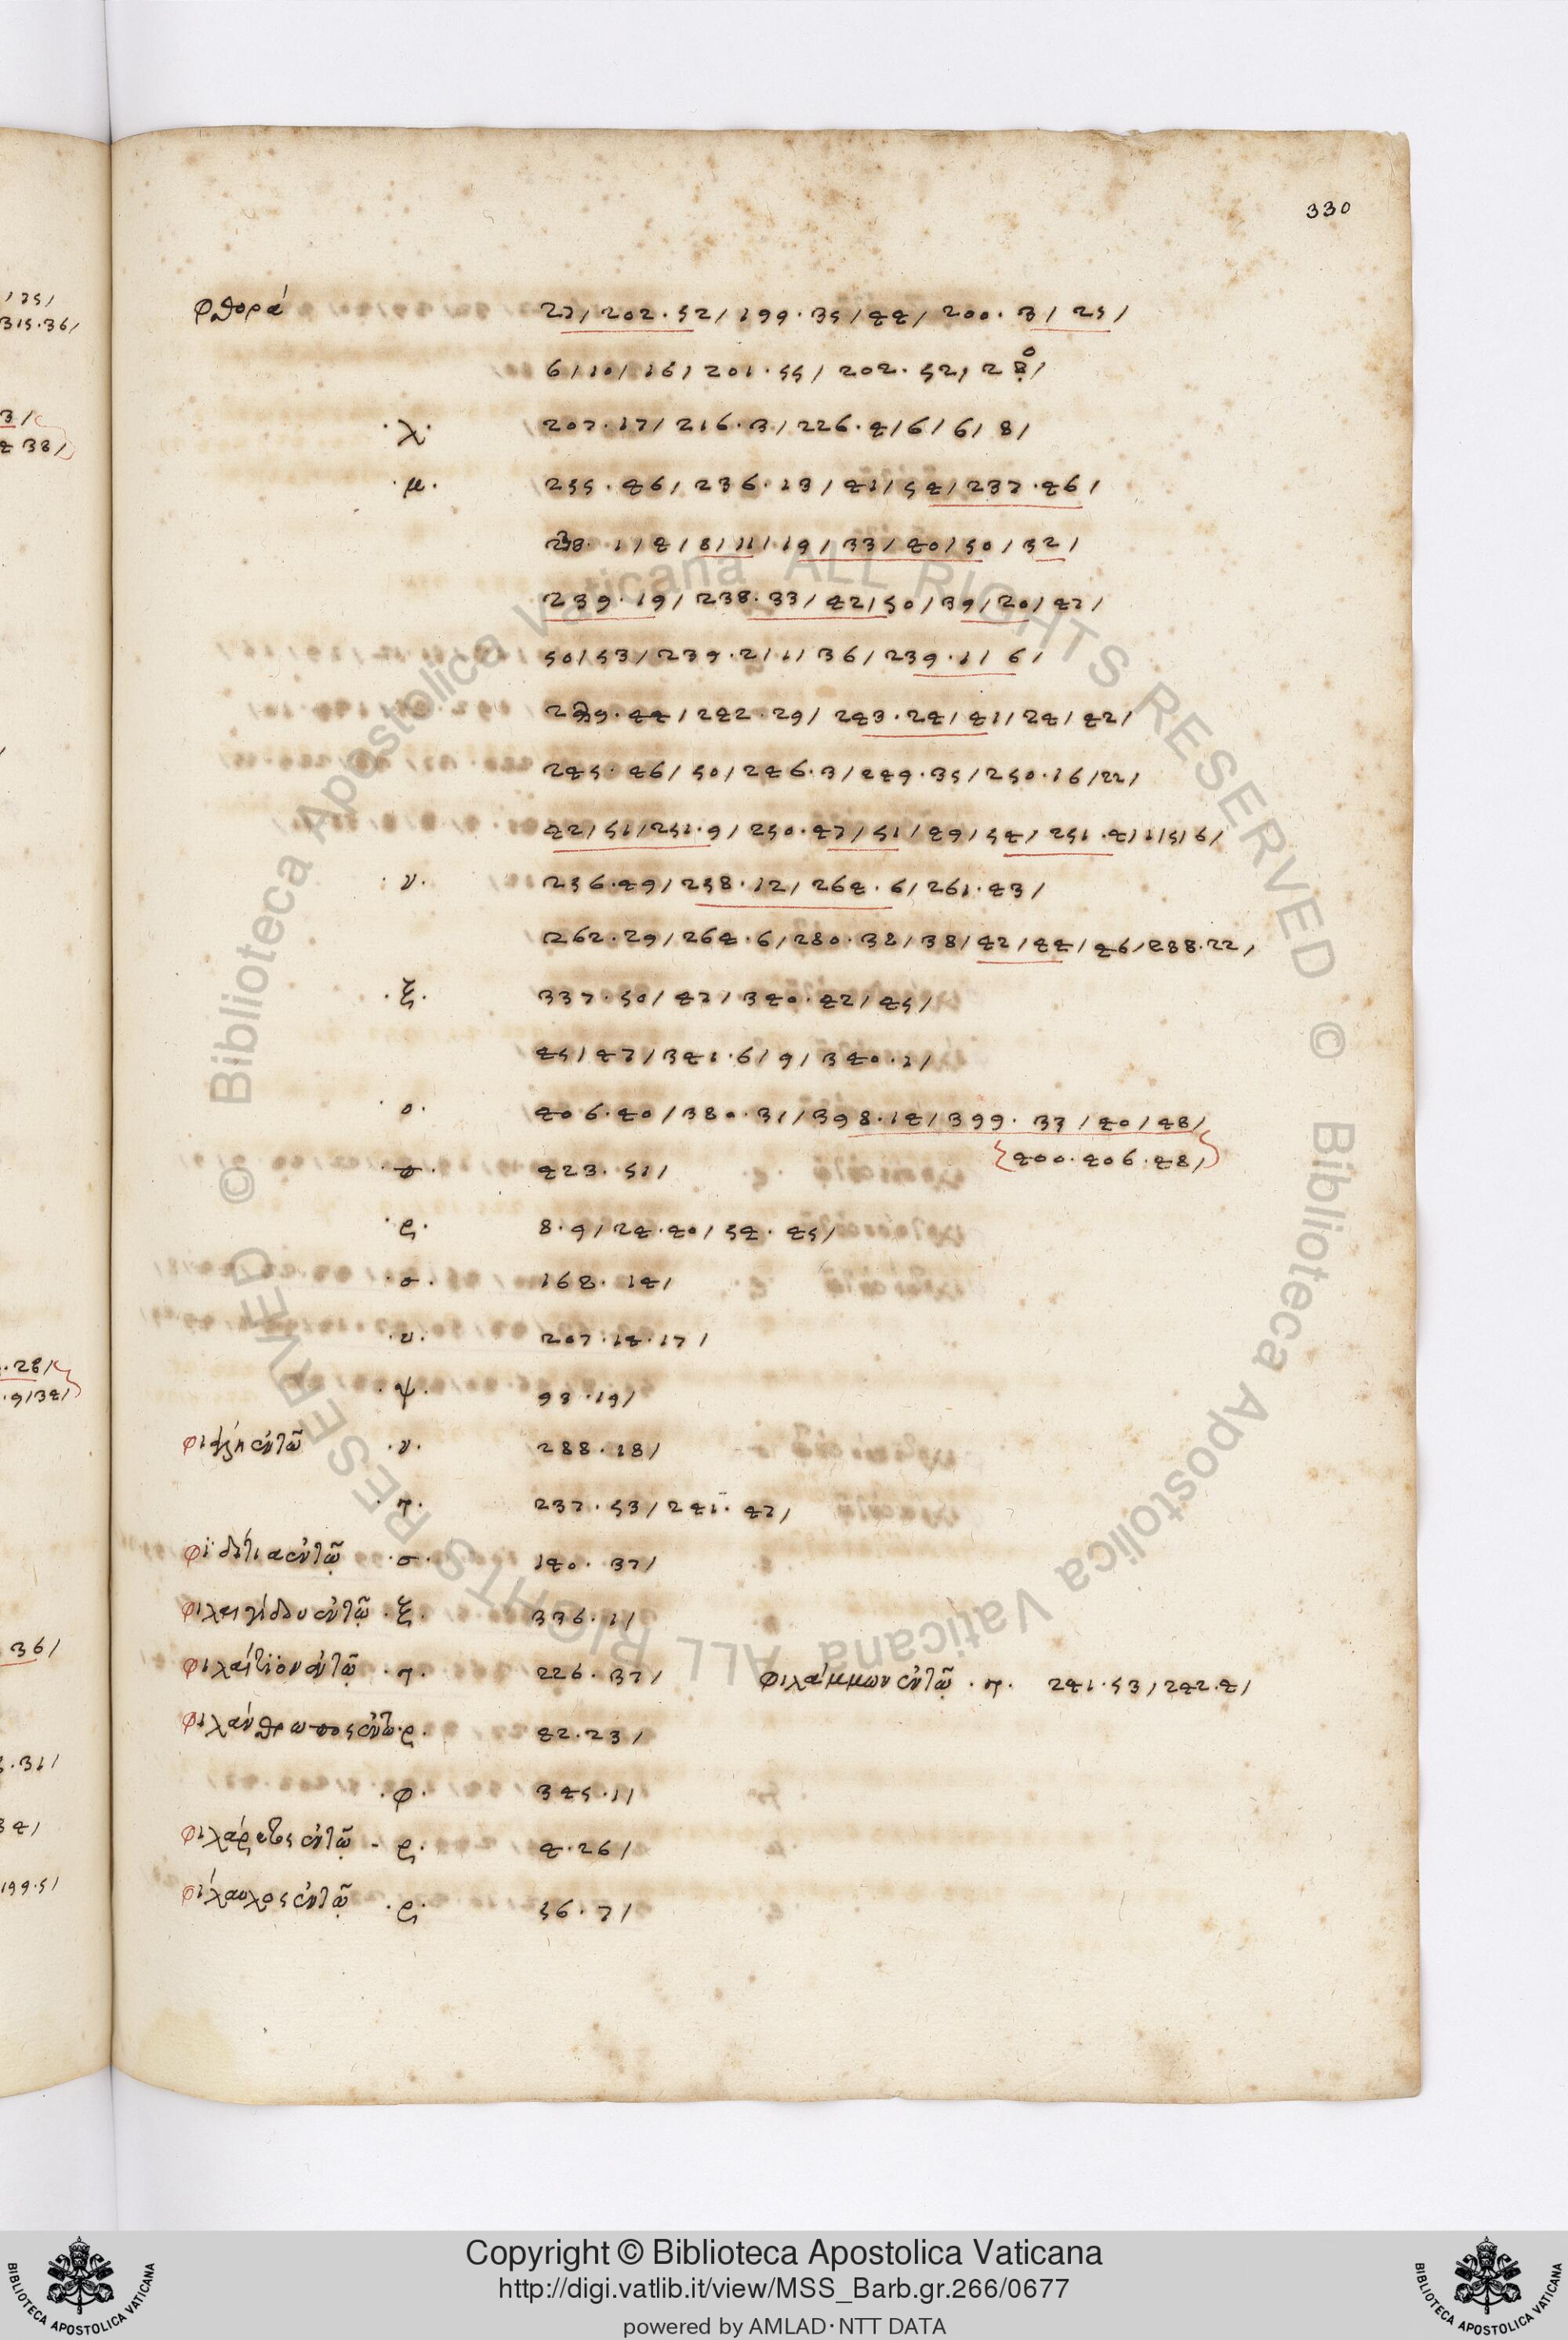 330
φθορά 27/ 202 · 52/ 199 · 35/ 44/ 200 · 3/ 25/
6/ 10/ 16/ 201 · 55/ 202 · 52, 28/
· λ · 207 · 17/ 216 · 3/ 226 · 4/6/6/ 8/
· μ · 235 · 46/ 236 · 13/ 41/ 54/ 237 · 46/
238 · 1/ 4/ 8/ 11/ 19/ 33/ 40/ 50/ 32/
239 · 19/ 238 · 33/ 42/ 50/ 39/ 20/ 47/
50/ 53/ 239 · 2/ 1/ 36/ 239 · 1/ 6/
239 · 44/ 242 · 29/ 243 · 24/ 41/ 24/ 42/
245 · 46/ 50/ 246 · 3/ 249 · 35/ 250 · 16/22/
42/ 51/ 251 · 9/ 250 · 47/ 51/ 49/ 54/ 251 · 4/1/5/6/
· ν · 256 · 49/ 258 · 12/ 264 · 6/ 261 · 43/
262 · 29/ 264 · 6/ 280 · 38/ 38/ 42/ 44/ 46/ 288 · 22/
· ξ · 337 · 50/ 47/ 340 · 42/ 45/
45/ 47/ 341 · 6/ 9/ 340 · 1/
· ο · 406 · 40/ 380 · 31/ 398 · 14/ 399 · 37/ 40/ 48/
400 · 406 · 48/
423 · 51/
· ρ · 8 · 9/ 24 · 40/ 54 · 45/
· σ · 168 · 14/
· υ · 207 · 14 · 17/
· ψ · 93 · 19/
· ν · 288 · 18/
· π · 237 · 53/ 241 · 47/
· σ · 140 · 37/
· ξ · 336 · 1/
· π · 226 · 37/ φιλάμμων ἐν τῷ · π · 241 · 53/ 242 · 4/
φιλάνθρωπος ἐν τῷ · ρ · 42 · 23/
· φ · 345 · 11/
φιλάρετος ἐν τῷ - ρ · 4 · 26/
φίλαυλος ἐν τῷ · ρ · 56 · 7/
Copyright © Biblioteca Apostolica Vaticana
http://digi.vatlib.it/view/MSS_Barb.gr.266/0677
powered by AMLAD·NTT DATA